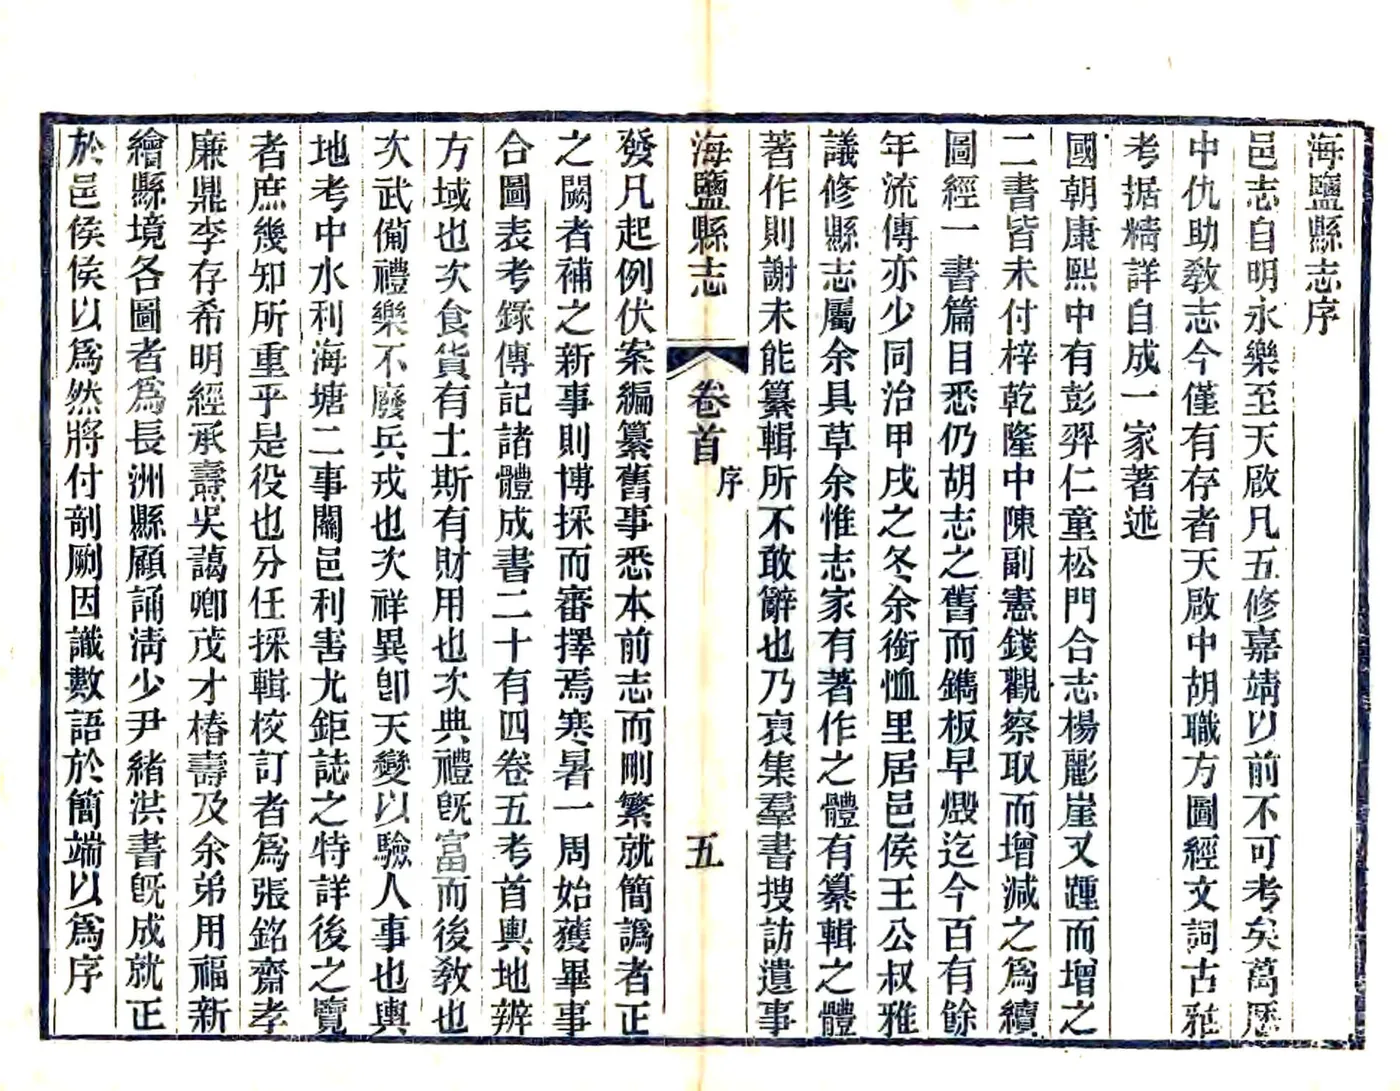 海鹽縣志序
邑志自明永樂至天啟凡五修嘉靖以前不可考矣萬厯
中仇助敎志今僅有存者天啟中胡職方圖經文詞古雅
考据精詳自成一家著述
國朝康熙中有彭羿仁童松門合志楊酈崖又踵而增之
二書皆未付梓乾隆中陳副憲錢觀察取而增減之爲續
圖經一書篇目悉仍胡志之舊而鐫板早燬迄今百有餘
年流傳亦少同治甲戌之冬余銜恤里居邑侯王公叔雅
議修縣志屬余具草余惟志家有著作之體有纂輯之體
著作則謝未能纂輯所不敢辭也乃裒集羣書搜訪遺事
海鹽縣志
卷首
序
五
發凡起例伏案編纂舊事悉本前志而刪繁就簡譌者正
之闕者補之新事則博採而審擇焉寒暑一周始獲畢事
合圖表考錄傳記諸體成書二十有四卷五考首輿地辨
方域也次食貨有土斯有財用也次典禮旣富而後敎也
次武備禮樂不廢兵戎也次祥異卽天變以驗人事也輿
地考中水利海塘二事關邑利害尤鉅誌之特詳後之覽
者庶幾知所重乎是役也分任採輯校訂者爲張銘齋孝
廉鼎李存希明經承燾吳藹卿茂才椿壽及余弟用福新
繪縣境各圖者爲長洲縣顧誦淸少尹緒洪書旣成就正
於邑侯侯以爲然將付剞劂因識數語於簡端以爲序